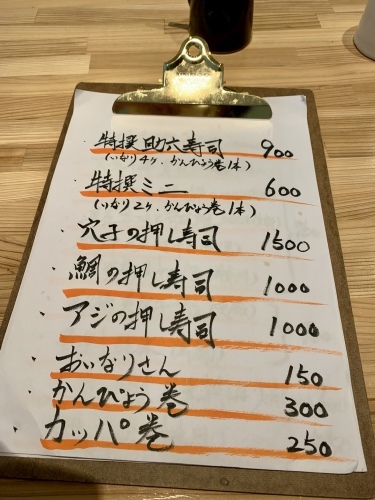 ・特撰助六寿司 900
(いなり4ヶ、かんぴょう巻1本)
・特撰ミニ 600
(いなり2ヶ、かんぴょう巻1本)
・穴子の押し寿司 1500
・鯛の押し寿司 1000
・アジの押し寿司 1000
・おいなりさん 150
・かんぴょう巻 300
・カッパ巻 250